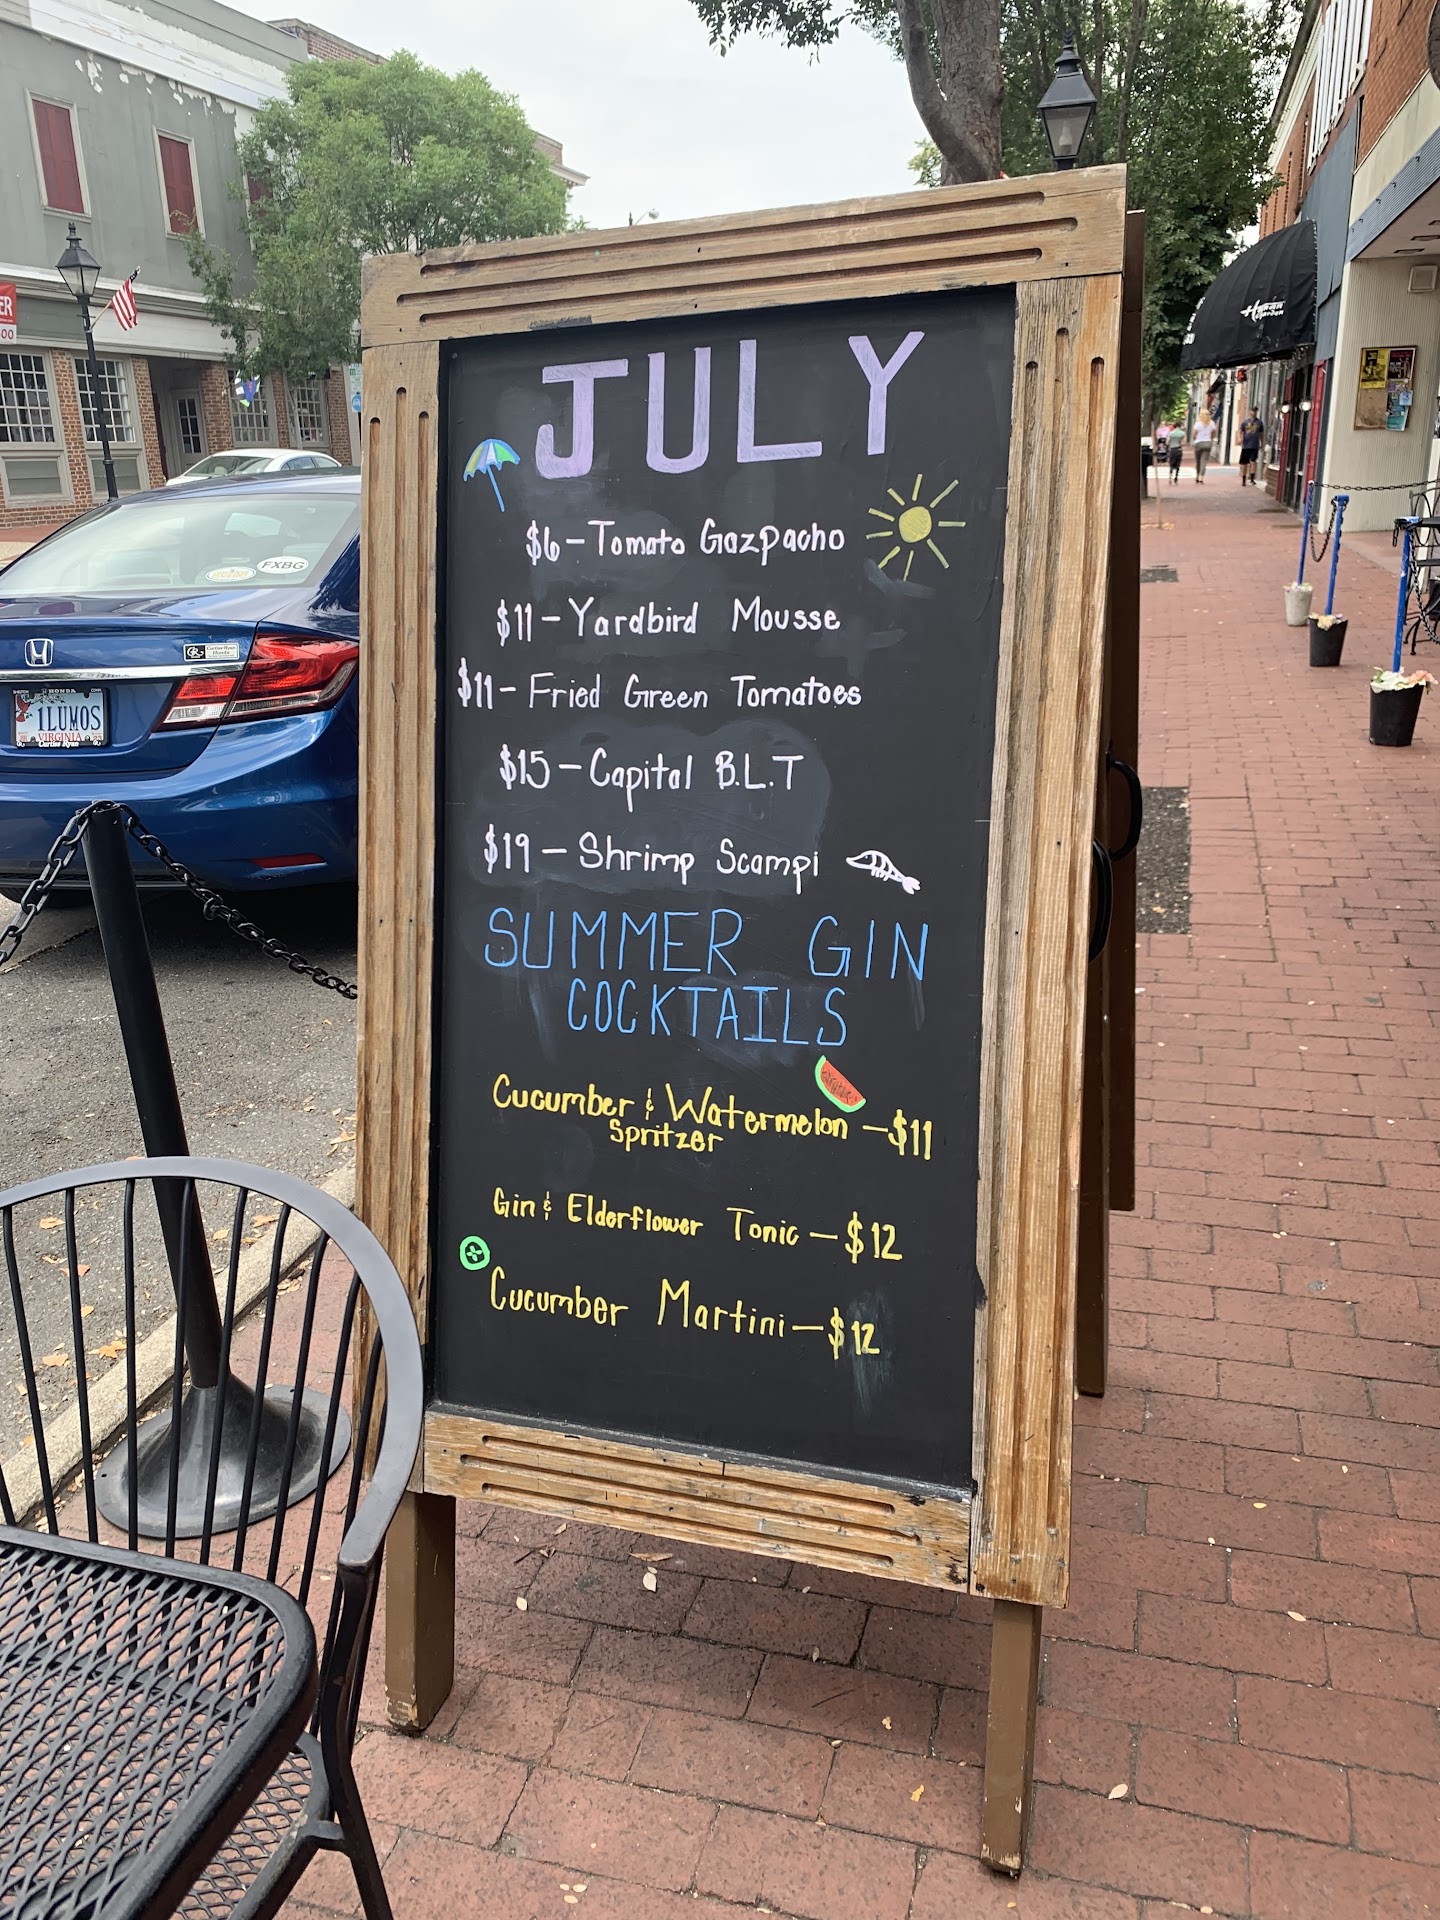 JULY
$6 - Tomato Gazpacho
$11 - Yardbird Mousse
$11 - Fried Green Tomatoes
$15 - Capital B.L.T
$19 - Shrimp Scampi
SUMMER GIN
COCKTAILS
Cucumber & Watermelon - $11
Spritzer
Gin & Elderflower Tonic - $12
Cucumber Martini - $12
FXBG
HONDA
1LUMOS
VIRGINIA
Curtiss Ryan
Curtiss Ryan
Honda
ER
00